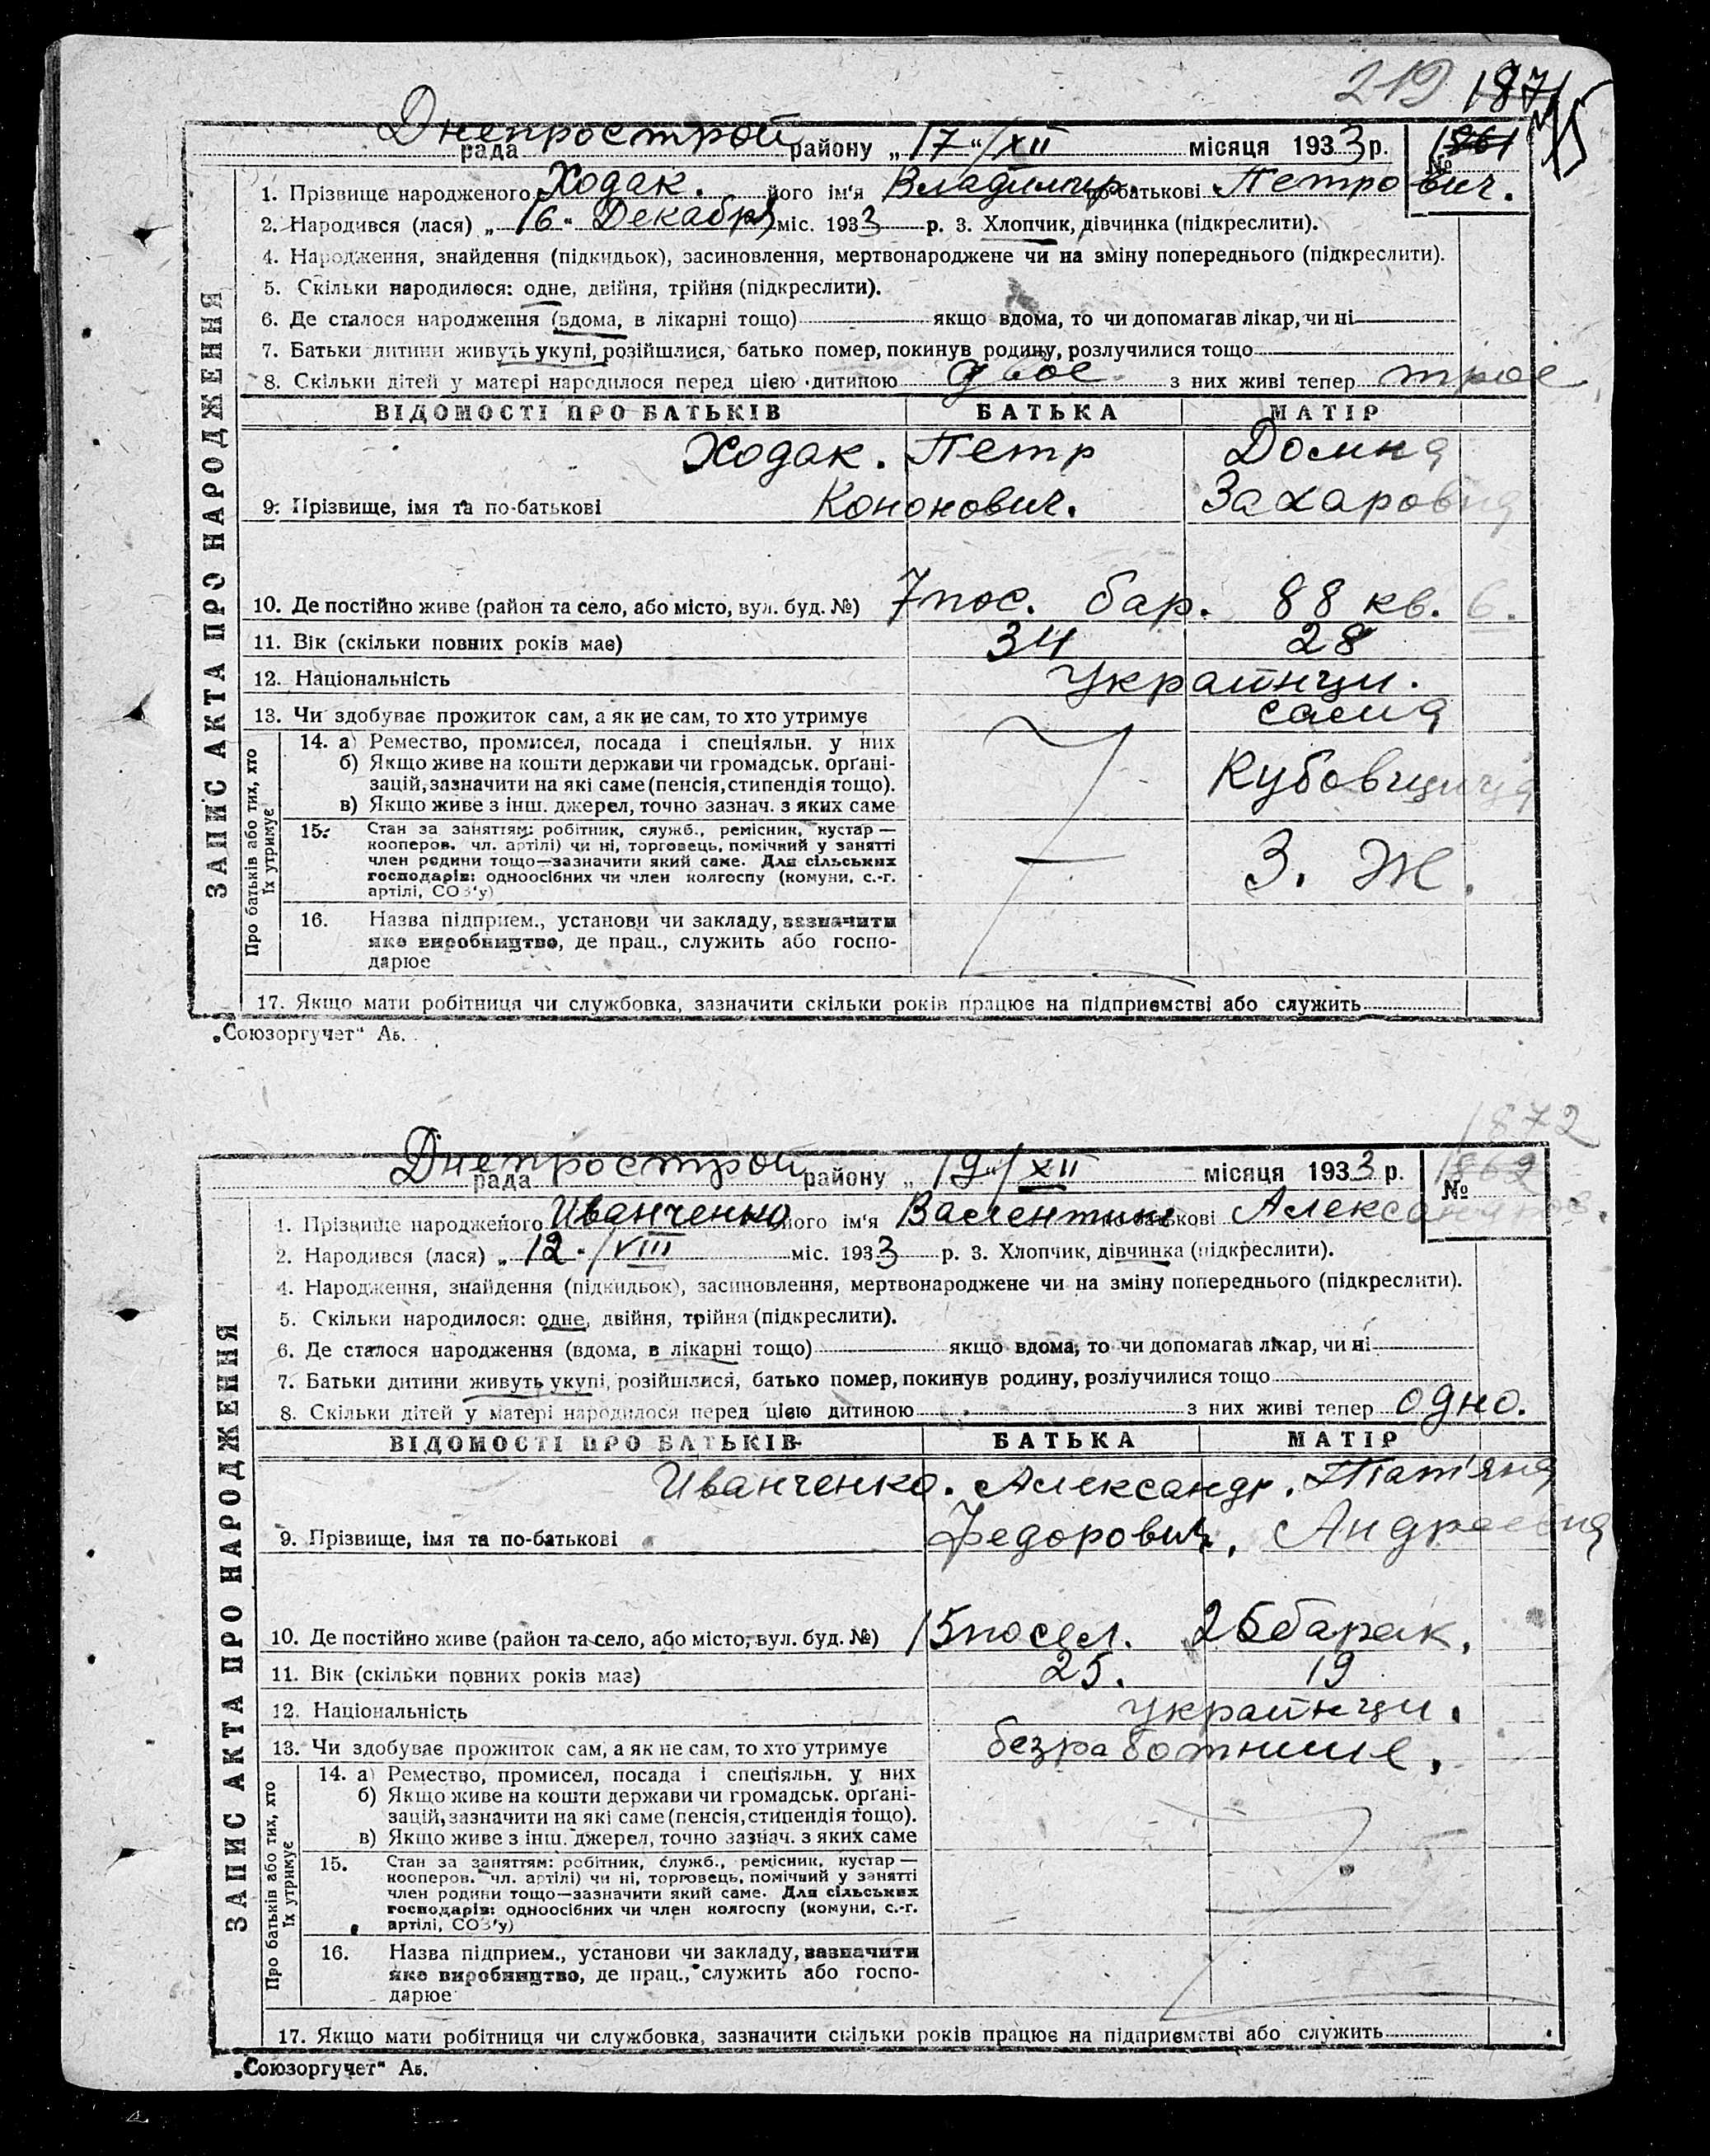 219 1871
Днепрострой
рада району „17“/XII місяця 1933 р. № 1861
1. Прізвище народженого Ходак. його ім'я Владимир. по-батькові Петрович.
2. Народився (лася) „16“ Декабря міс. 1933 р. 3. Хлопчик, дівчинка (підкреслити).
4. Народження, знайдення (підкидьок), засиновлення, мертвонароджене чи на зміну попереднього (підкреслити).
5. Скільки народилося: одне, двійня, трійня (підкреслити).
6. Де сталося народження (вдома, в лікарні тощо) якщо вдома, то чи допомагав лікар, чи ні
7. Батьки дитини живуть укупі, розійшлися, батько помер, покинув родину, розлучилися тощо
8. Скільки дітей у матері народилося перед цією дитиною двое з них живі тепер трое
ВІДОМОСТІ ПРО БАТЬКІВ БАТЬКА МАТІР
Ходак. Петр Домна
9. Прізвище, імя та по-батькові Кононович. Захаровна
10. Де постійно живе (район та село, або місто, вул. буд. №) 7 пос. бар. 88 кв. 6.
11. Вік (скільки повних років має) 34 28
12. Національність украинци.
13. Чи здобуває прожиток сам, а як не сам, то хто утримує сама
14. а) Ремество, промисел, посада і спеціяльн. у них
б) Якщо живе на кошти держави чи громадськ. орґані-
зацій, зазначити на які саме (пенсія, стипендія тощо). Кубовщица
в) Якщо живе з інш. джерел, точно зазнач. з яких саме
15. Стан за заняттям: робітник, служб., ремісник, кустар —
кооперов. чл. артілі) чи ні, торговець, помічний у занятті
член родини тощо—зазначити який саме. Для сільських
господарів: одноосібних чи член колгоспу (комуни, с.-г. З. Ж.
артілі, СОЗ'у)
16. Назва підприєм., установи чи закладу, зазначити
яке виробництво, де прац., служить або госпо-
дарює
17. Якщо мати робітниця чи службовка, зазначити скільки років працює на підприємстві або служить
ЗАПИС АКТА ПРО НАРОДЖЕННЯ
Про батьків або тих, хто
їх утримує
„Союзоргучет“ Аб.
1872
Днепрострой
рада району „19“/XII місяця 1933 р. № 1862
1. Прізвище народженого Иванченко його ім'я Валентина по-батькові Александров.
2. Народився (лася) „12./VIII міс. 1933 р. 3. Хлопчик, дівчинка (підкреслити).
4. Народження, знайдення (підкидьок), засиновлення, мертвонароджене чи на зміну попереднього (підкреслити).
5. Скільки народилося: одне, двійня, трійня (підкреслити).
6. Де сталося народження (вдома, в лікарні тощо) якщо вдома, то чи допомагав лікар, чи ні
7. Батьки дитини живуть укупі, розійшлися, батько помер, покинув родину, розлучилися тощо
8. Скільки дітей у матері народилося перед цією дитиною з них живі тепер одно.
ВІДОМОСТІ ПРО БАТЬКІВ БАТЬКА МАТІР
Иванченко. Александр. Татьяна
9. Прізвище, імя та по-батькові Федорович, Андреевна
10. Де постійно живе (район та село, або місто, вул. буд. №) 15 посел. 26 барак.
11. Вік (скільки повних років має) 25. 19
12. Національність украинци.
13. Чи здобуває прожиток сам, а як не сам, то хто утримує безработные.
14. а) Ремество, промисел, посада і спеціяльн. у них
б) Якщо живе на кошти держави чи громадськ. орґані-
зацій, зазначити на які саме (пенсія, стипендія тощо).
в) Якщо живе з інш. джерел, точно зазнач. з яких саме
15. Стан за заняттям: робітник, служб., ремісник, кустар —
кооперов. чл. артілі) чи ні, торговець, помічний у занятті
член родини тощо—зазначити який саме. Для сільських
господарів: одноосібних чи член колгоспу (комуни, с.-г.
артілі, СОЗ'у)
16. Назва підприєм., установи чи закладу, зазначити
яке виробництво, де прац., служить або госпо-
дарює
17. Якщо мати робітниця чи службовка, зазначити скільки років працює на підприємстві або служить
ЗАПИС АКТА ПРО НАРОДЖЕННЯ
Про батьків або тих, хто
їх утримує
„Союзоргучет“ Аб.